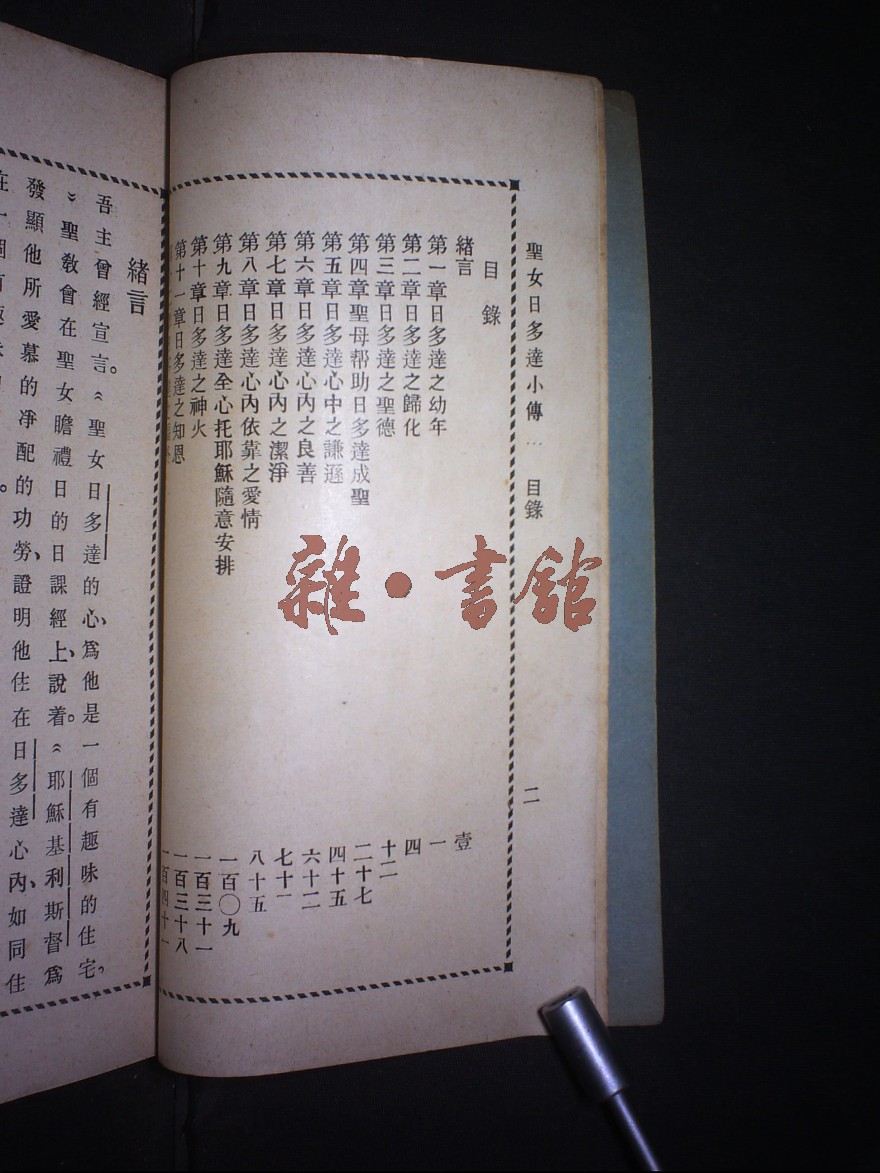 聖女日多達小傳 … 目錄
二
目錄
緒言 壹
第一章日多達之幼年 一
第二章日多達之歸化 四
第三章日多達之聖德 十二
第四章聖母帮助日多達成聖 二十七
第五章日多達心中之謙遜 四十五
第六章日多達心內之良善 六十二
第七章日多達心內之潔淨 七十一
第八章日多達心內依靠之愛情 八十五
第九章日多達全心托耶穌隨意安排 一百〇九
第十章日多達之神火 一百三十一
第十一章日多達之知恩 一百三十八
一百四十一
緒言
吾主曾經宣言。《聖女日多達的心、爲他是一個有趣味的住宅。
》聖敎會在聖女瞻禮日的日課經上、說着。《耶穌基利斯督爲
發顯他所愛慕的淨配的功勞、證明他住在日多達心內、如同住
在一個有趣
雜·書館